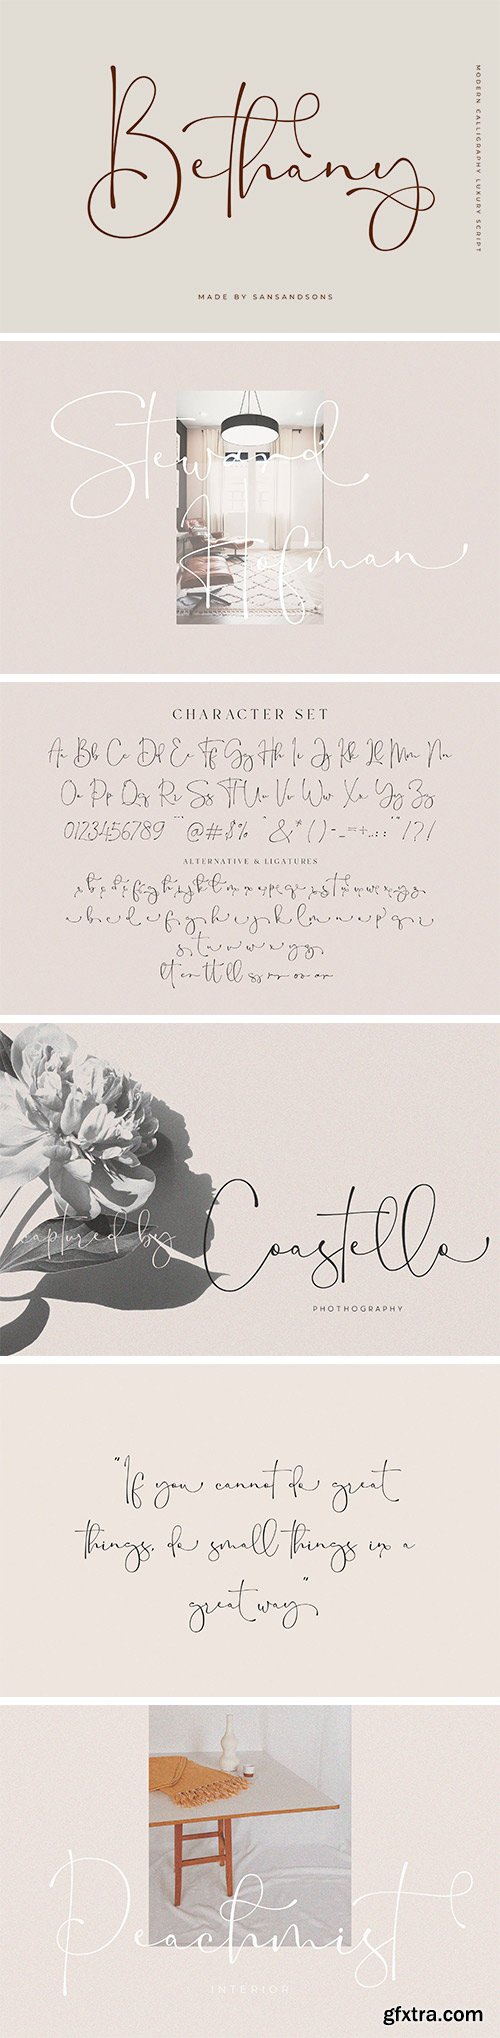 Bethany
MODERN CALLIGRAPHY LUXURY SCRIPT
MADE BY SANSANDSONS
Steward
Hofman
CHARACTER SET
Aa Bb Cc Dd Ee Ff Gg Hh Ii Jj Kk Ll Mm Nn
Oo Pp Qq Rr Ss Tt Uu Vv Ww Xx Yy Zz
0123456789 @#$% &*()-_=+
ALTERNATIVE & LIGATURES
captured by
Coastello
PHOTHOGRAPHY
"If you cannot do great
things, do small things in a
great way"
Peachmist
INTERIOR
gfxtra.com